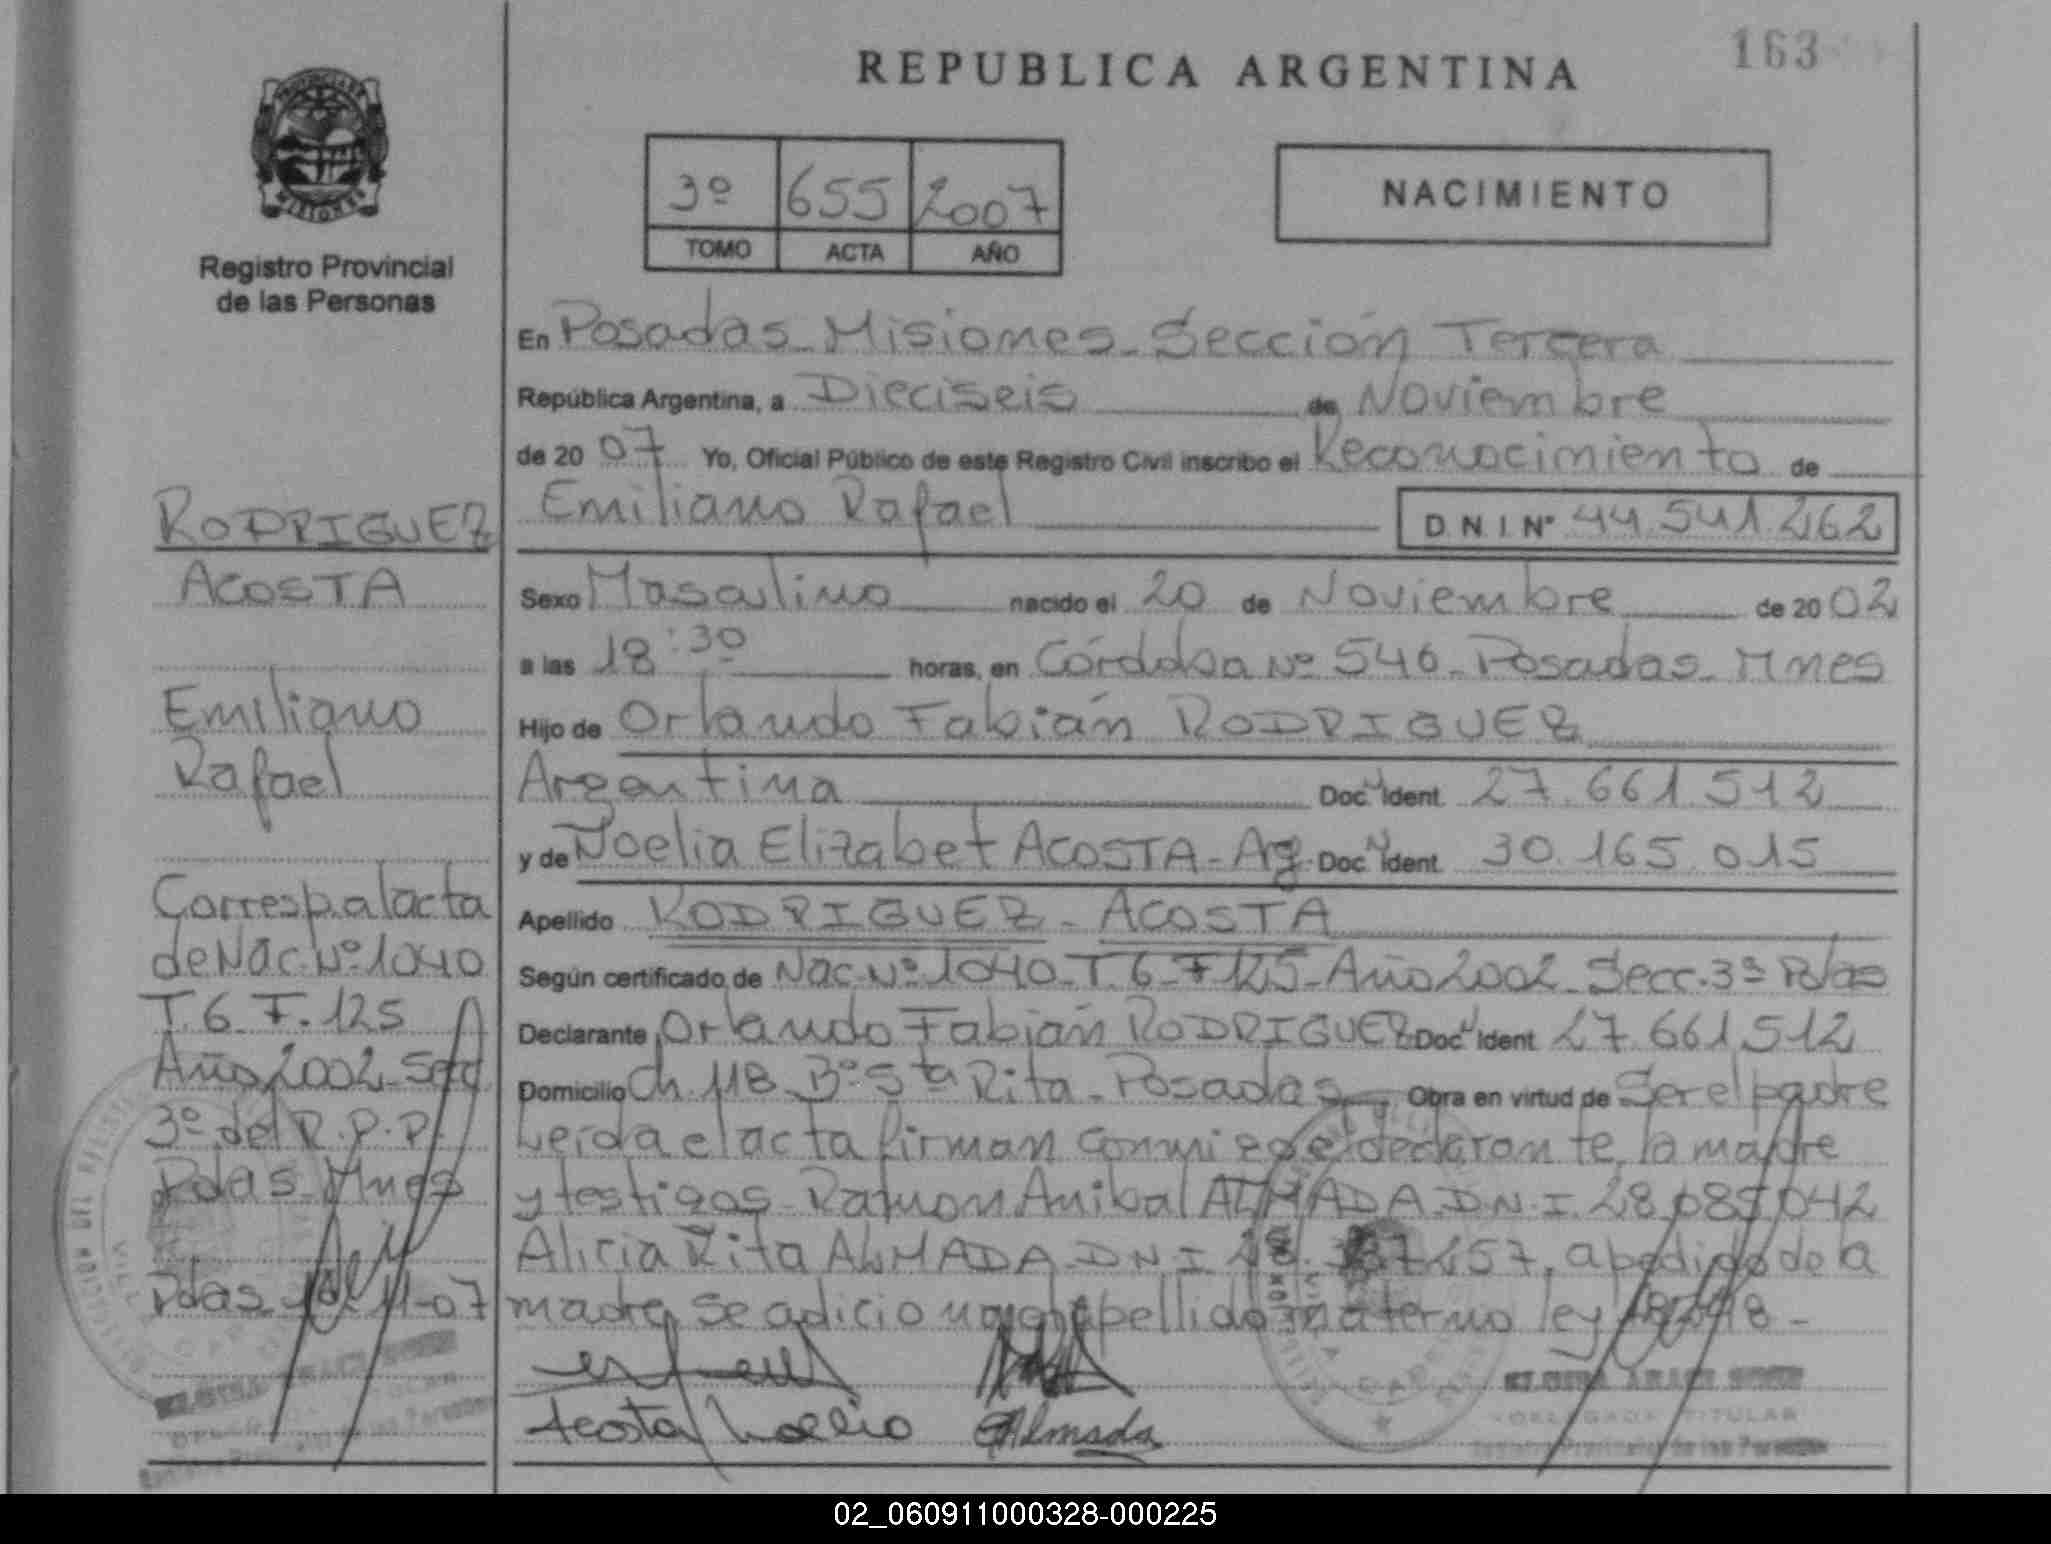 163
REPUBLICA ARGENTINA
PROVINCIA DE
MISIONES
Registro Provincial
de las Personas
3º 655 2007
TOMO ACTA AÑO
NACIMIENTO
En Posadas - Misiones - Sección Tercera
República Argentina, a Dieciseis de Noviembre
de 20 07 Yo, Oficial Público de este Registro Civil inscribo el Reconocimiento de
Emiliano Rafael D.N.I. Nº 44.541.262
Sexo Masculino nacido el 20 de Noviembre de 20 02
a las 18:30 horas, en Córdoba Nº 546 - Posadas - Mnes
Hijo de Orlando Fabián RODRIGUEZ
Argentina Doc. Ident. 27.661.512
y de Noelia Elizabet ACOSTA - Ag. Doc. Ident. 30.165.015
Apellido RODRIGUEZ - ACOSTA
Según certificado de Nac. Nº 1040 - T. 6 - F 125 - Año 2002 - Secc. 3ª Pdas
Declarante Orlando Fabián RODRIGUEZ Doc. Ident. 27.661.512
Domicilio Ch. 118 - Bº Sta Rita - Posadas Obra en virtud de Ser el padre
Leída el acta firman conmigo el declarante, la madre
y testigos - Ramon Anibal ALMADA D.N.I. 28.085.042
Alicia Rita ALMADA D.N.I. 257, a pedido de la
madre se adiciona el apellido materno ley 18248 -
Acosta Noelia Almada
DELEGADA TITULAR
Registro Provincial de las Personas
RODRIGUEZ
ACOSTA
Emiliano
Rafael
Corresp. al acta
de Nac. Nº 1040
T. 6 F. 125
Año 2002 - Secc.
3º del R.P.P.
Pdas - Mnes
Pdas 11-07
02_060911000328-000225